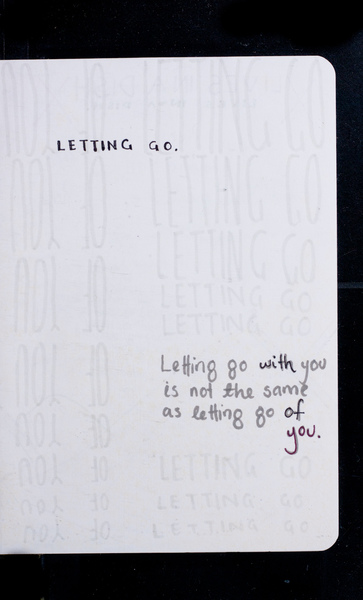 LETTING GO.
Letting go with you
is not the same
as letting go of
you.